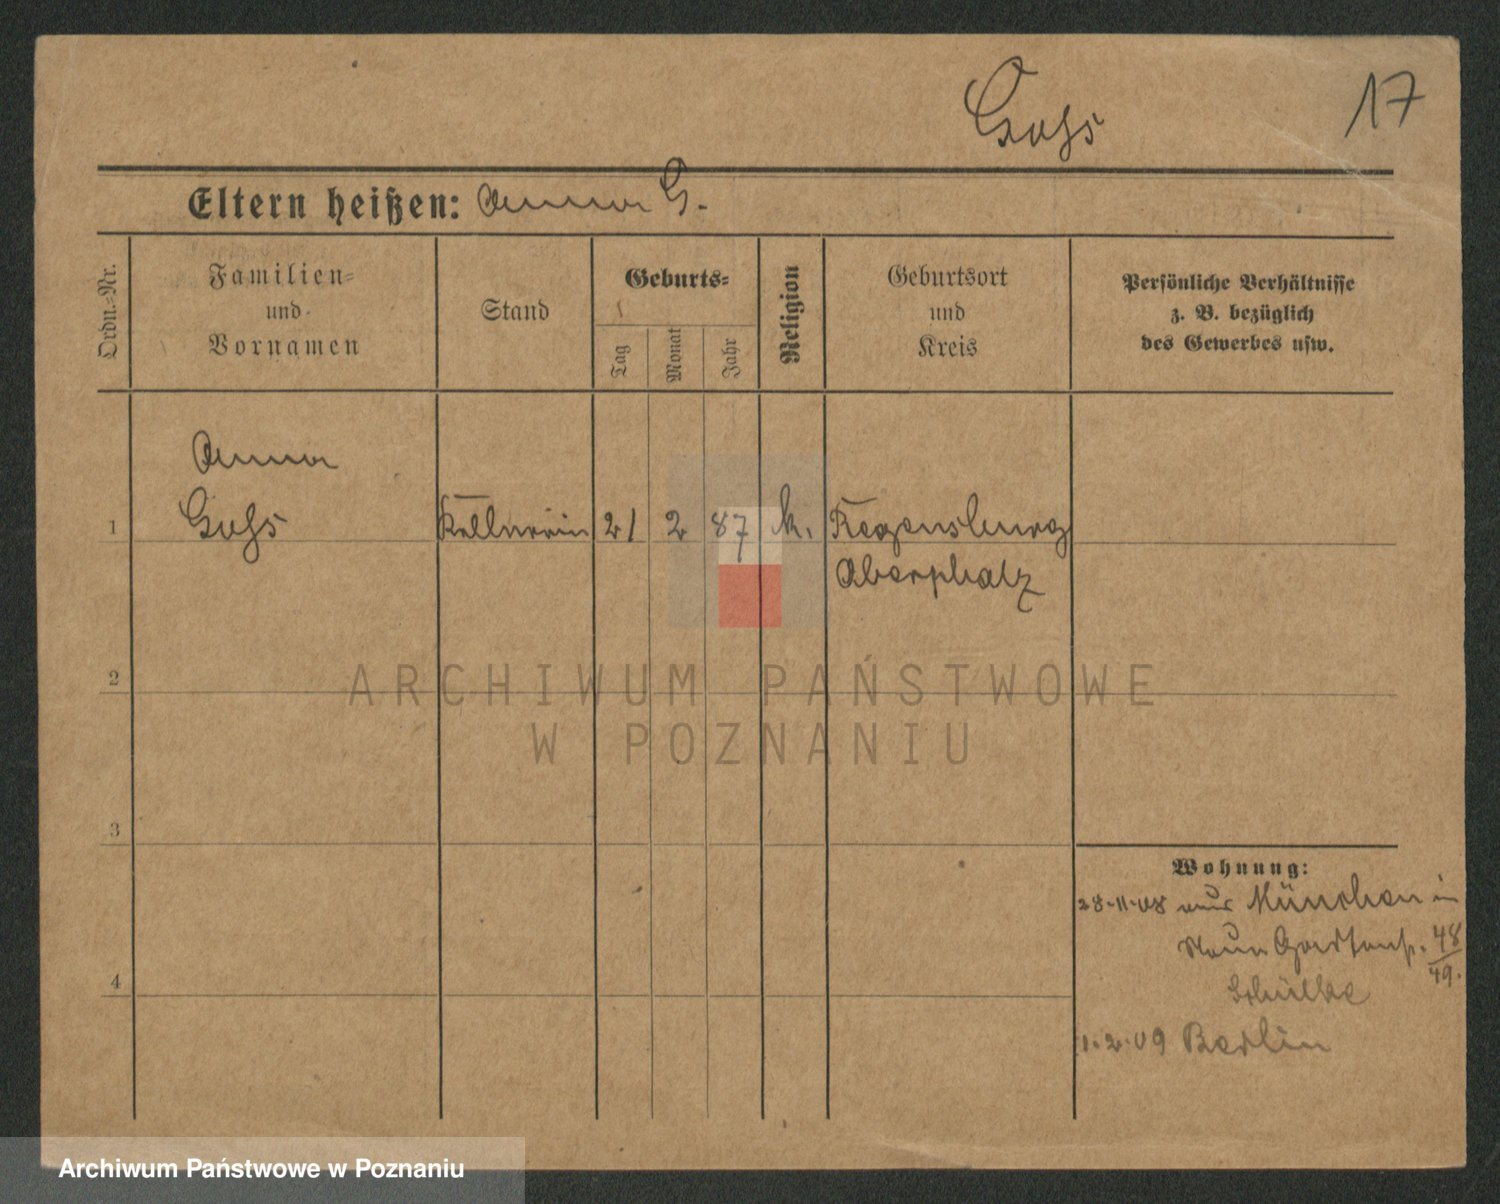 Gohs
17
Eltern heißen: Anna G.
Ordn.=Nr.
Familien=
und
Vornamen
Stand
Geburts=
Tag
Monat
Jahr
Religion
Geburtsort
und
Kreis
Persönliche Verhältnisse
z. B. bezüglich
des Gewerbes usw.
Anna
1 Gohs Kellnerin 21 2 87 k. Regensburg
Oberphalz
2
3
4
Wohnung:
28-11-08 aus München in
Neue Gartenst. 48/49.
1.2.09 Berlin
ARCHIWUM PAŃSTWOWE
W POZNANIU
Archiwum Państwowe w Poznaniu